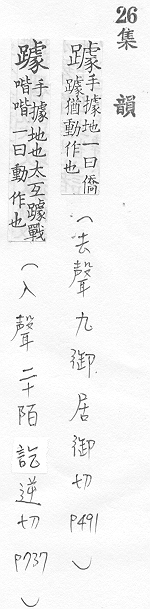 26
集韻
躆手據地一曰僑躆猶動作也（去聲九御居御切P491）
躆手據地也太玄躆戰喈喈一曰動作也（入聲二十陌訖逆切P737）